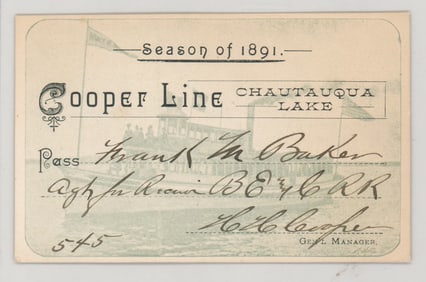 Season of 1891.
Cooper Line CHAUTAUQUA LAKE
Pass Frank M Baker
Agt for Receiver B E & C RR
H H Cooper
545 GEN'L MANAGER.